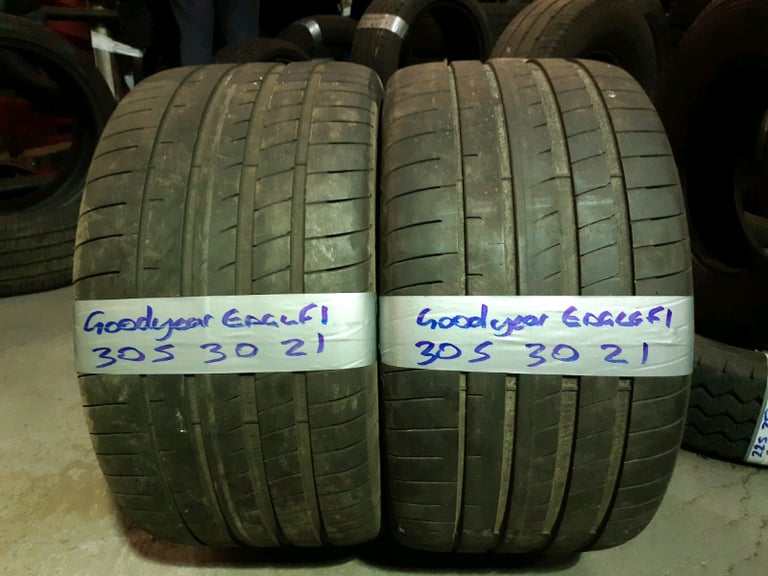 Goodyear EAGLE F1
305 30 21
Goodyear EAGLE F1
305 30 21
225